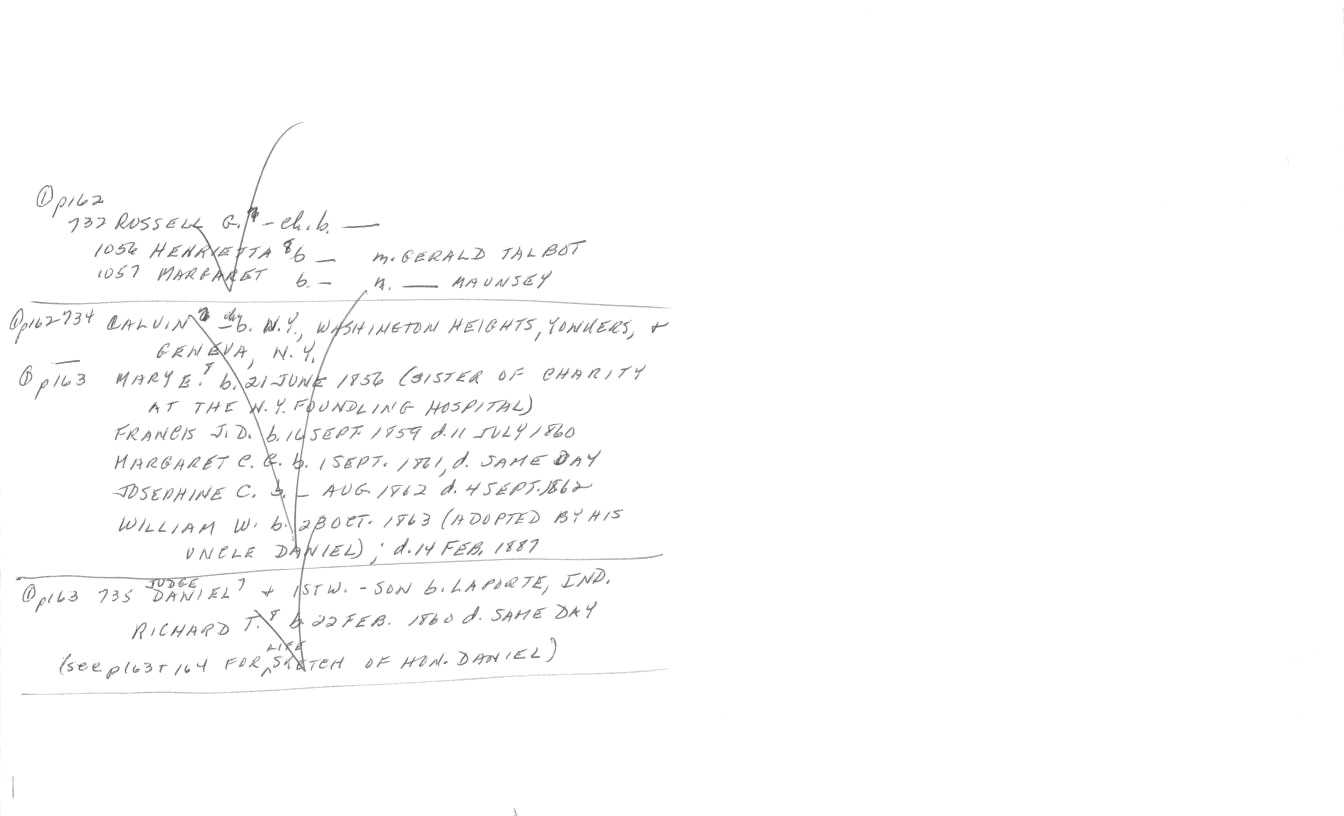 ① p162
732 RUSSELL G.⁷ - ch. b. —
1056 HENRIETTA ⁸ b — m. GERALD TALBOT
1057 MARGARET b. — m. — MAUNSEY
① p162 734 CALVIN ⁷ - ch b. N.Y., WASHINGTON HEIGHTS, YONKERS, +
GENEVA, N.Y.
① p163 MARY E.⁸ b. 21 JUNE 1856 (SISTER OF CHARITY
AT THE N.Y. FOUNDLING HOSPITAL)
FRANCIS J.D. b. 16 SEPT 1859 d. 11 JULY 1860
MARGARET C. G. b. 1 SEPT. 1861, d. SAME DAY
JOSEPHINE C. b. — AUG 1862 d. 4 SEPT. 1862
WILLIAM W. b. 28 OCT. 1863 (ADOPTED BY HIS
UNCLE DANIEL); d. 14 FEB. 1887
① p163 735 JUDGE DANIEL⁷ + 1ST W. - SON b. LAPORTE, IND.
RICHARD T.⁸ b 22 FEB. 1860 d. SAME DAY
(see p163 + 164 FOR LIFE SKETCH OF HON. DANIEL)